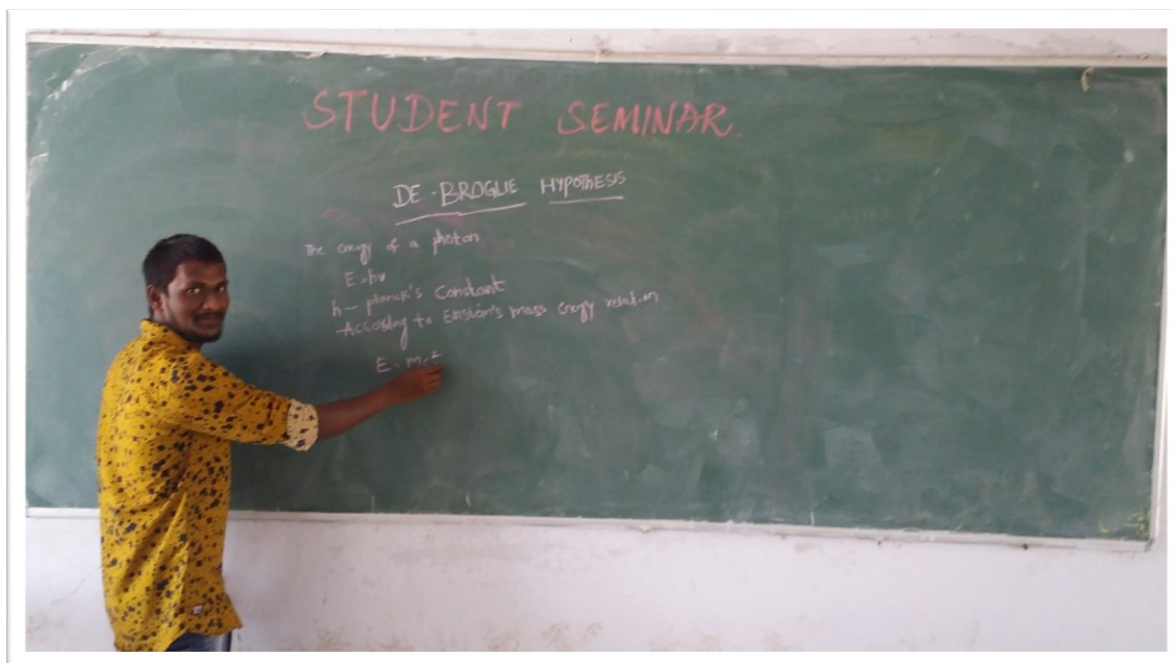 STUDENT SEMINAR
DE-BROGLIE HYPOTHESIS
The energy of a photon
E=hν
h- planck's Constant
According to Einstein's mass energy relation
E=mc²